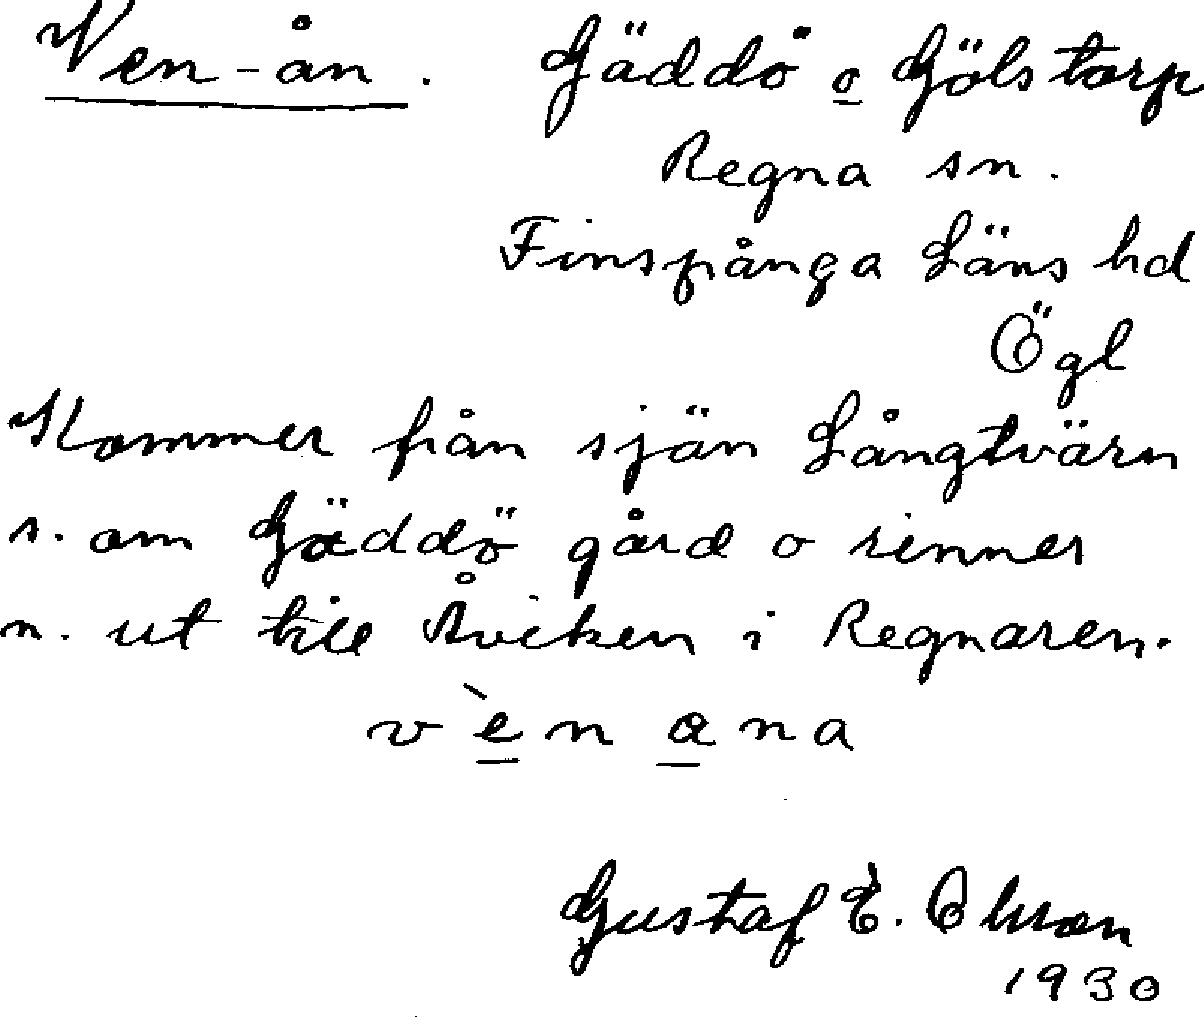 Ven-ån. Gäddö o Gölstorp
Regna sn.
Finspånga Läns hd
Ögl
Kommer från sjön Långtvärn
s. om Gäddö gård o rinner
n. ut till Åviken i Regnaren.
v è n a n a
Gustaf E. Olsson
1930